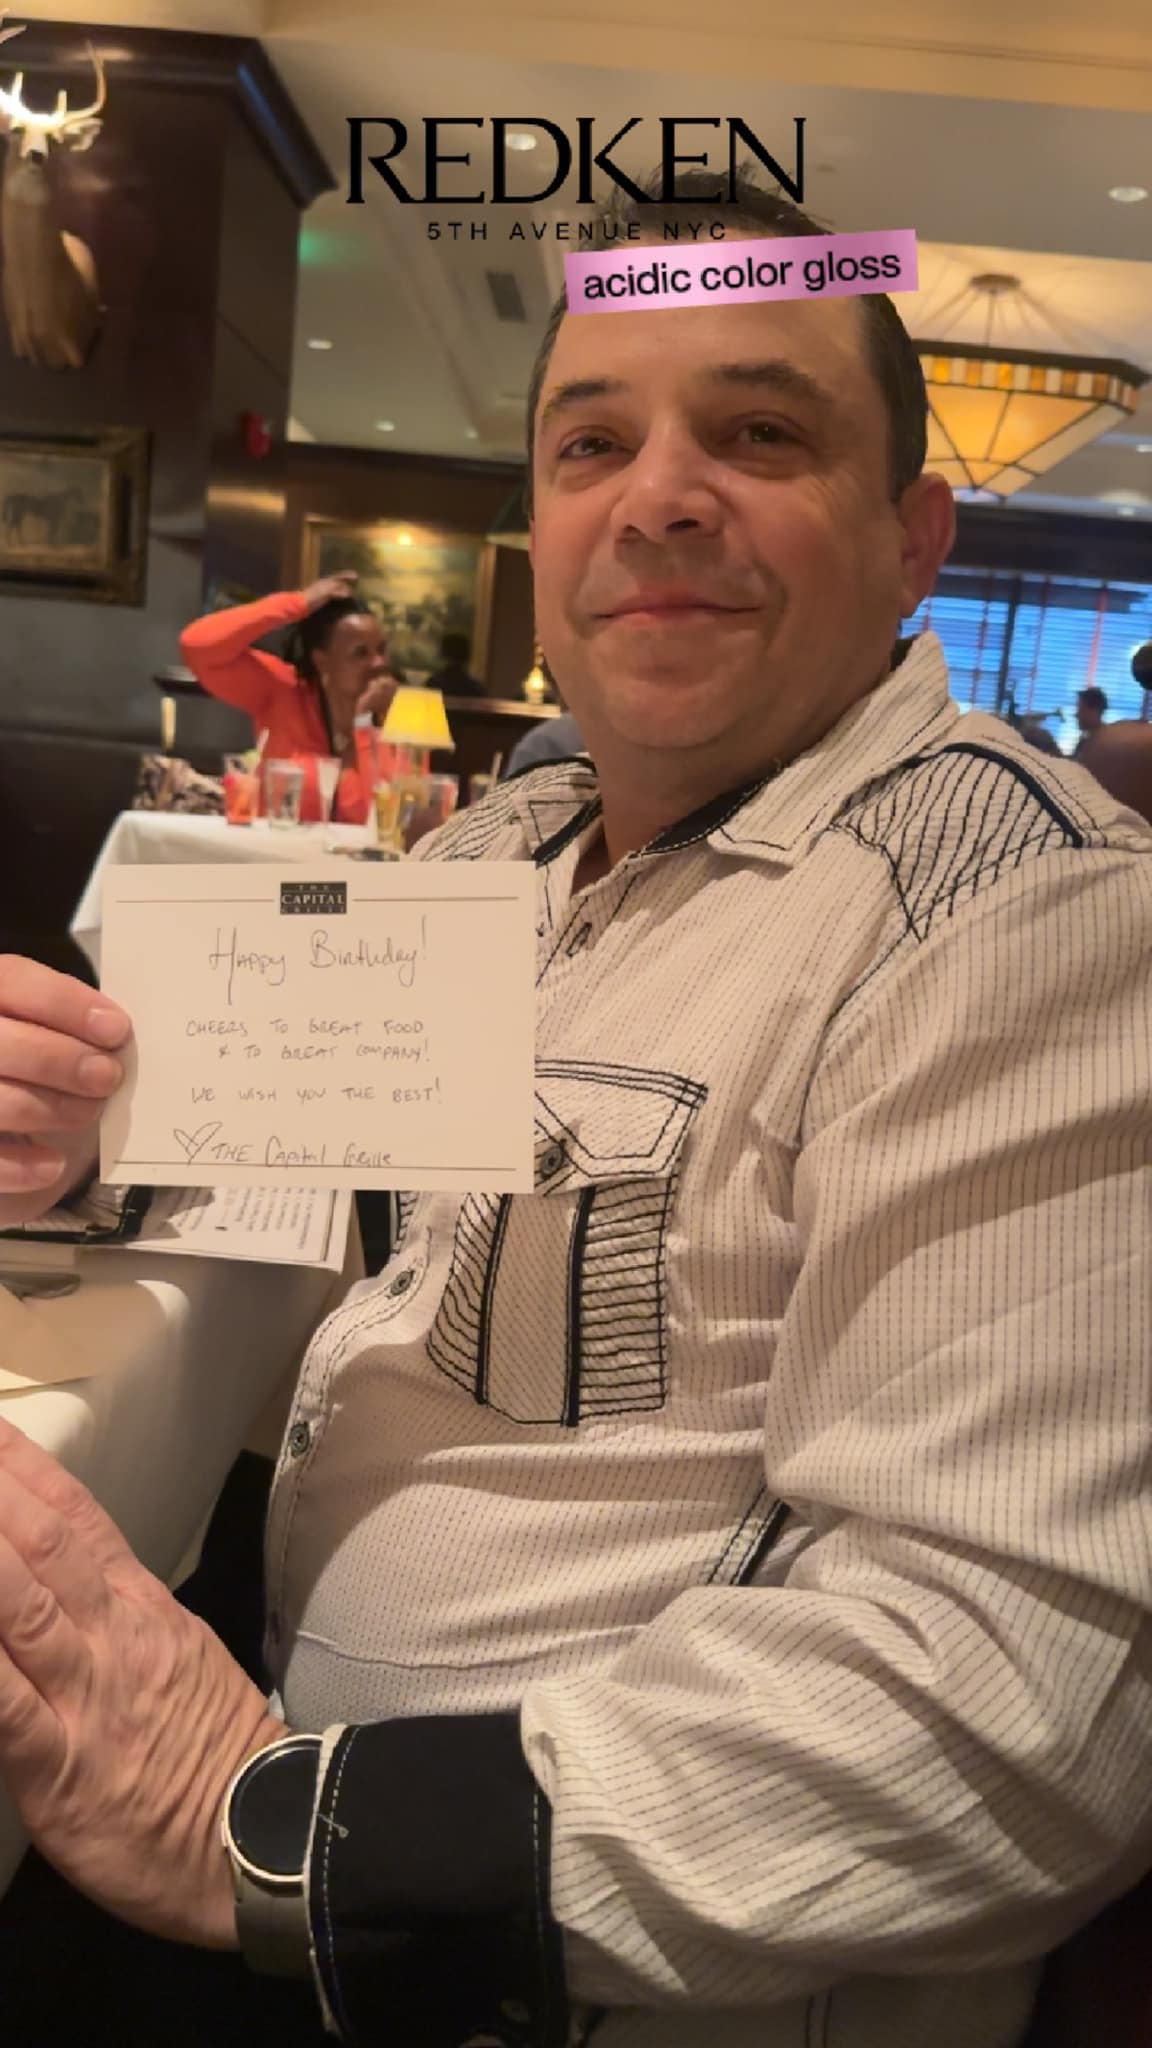 REDKEN
5TH AVENUE NYC
acidic color gloss
THE
CAPITAL
GRILLE
Happy Birthday!
CHEERS TO GREAT FOOD
& TO GREAT COMPANY!
WE WISH YOU THE BEST!
THE Capital Grille